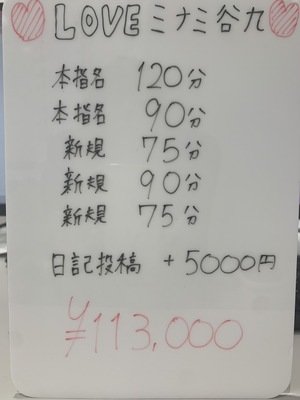 LOVE ミナミ谷九
本指名 120分
本指名 90分
新規 75分
新規 90分
新規 75分
日記投稿 + 5000円
¥113,000